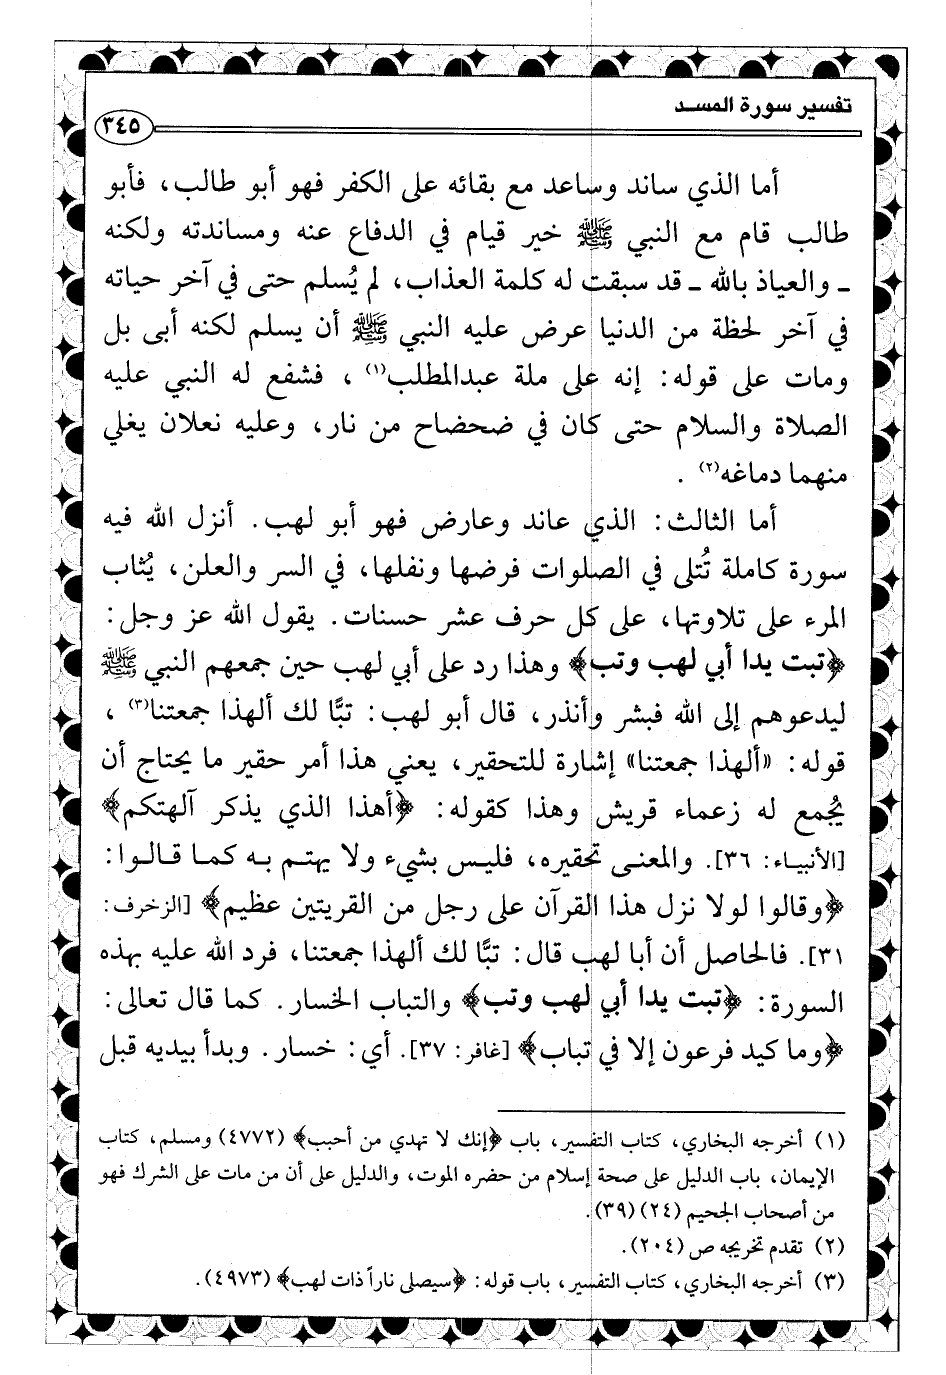 تفسير سورة المسد
٣٤٥
أما الذي ساند وساعد مع بقائه على الكفر فهو أبو طالب، فأبو
طالب قام مع النبي ﷺ خير قيام في الدفاع عنه ومساندته ولكنه
ـ والعياذ بالله ـ قد سبقت له كلمة العذاب، لم يُسلم حتى في آخر حياته
في آخر لحظة من الدنيا عرض عليه النبي ﷺ أن يسلم لكنه أبى بل
ومات على قوله: إنه على ملة عبدالمطلب(١)، فشفع له النبي عليه
الصلاة والسلام حتى كان في ضحضاح من نار، وعليه نعلان يغلي
منهما دماغه(٢).
أما الثالث: الذي عاند وعارض فهو أبو لهب. أنزل الله فيه
سورة كاملة تُتلى في الصلوات فرضها ونفلها، في السر والعلن، يُثاب
المرء على تلاوتها، على كل حرف عشر حسنات. يقول الله عز وجل:
﴿تبت يدا أبي لهب وتب﴾ وهذا رد على أبي لهب حين جمعهم النبي ﷺ
ليدعوهم إلى الله فبشر وأنذر، قال أبو لهب: تبًّا لك ألهذا جمعتنا(٣)،
قوله: «ألهذا جمعتنا» إشارة للتحقير، يعني هذا أمر حقير ما يحتاج أن
يُجمع له زعماء قريش وهذا كقوله: ﴿أهذا الذي يذكر آلهتكم﴾
[الأنبياء: ٣٦]. والمعنى تحقيره، فليس بشيء ولا يهتم به كما قالوا:
﴿وقالوا لولا نزل هذا القرآن على رجل من القريتين عظيم﴾ [الزخرف:
٣١]. فالحاصل أن أبا لهب قال: تبًّا لك ألهذا جمعتنا، فرد الله عليه بهذه
السورة: ﴿تبت يدا أبي لهب وتب﴾ والتباب الخسار. كما قال تعالى:
﴿وما كيد فرعون إلا في تباب﴾ [غافر: ٣٧]. أي: خسار. وبدأ بيديه قبل
(١) أخرجه البخاري، كتاب التفسير، باب ﴿إنك لا تهدي من أحبب﴾ (٤٧٧٢) ومسلم، كتاب
الإيمان، باب الدليل على صحة إسلام من حضره الموت، والدليل على أن من مات على الشرك فهو
من أصحاب الجحيم (٢٤) (٣٩).
(٢) تقدم تخريجه ص (٢٠٤).
(٣) أخرجه البخاري، كتاب التفسير، باب قوله: ﴿سيصلى ناراً ذات لهب﴾ (٤٩٧٣).